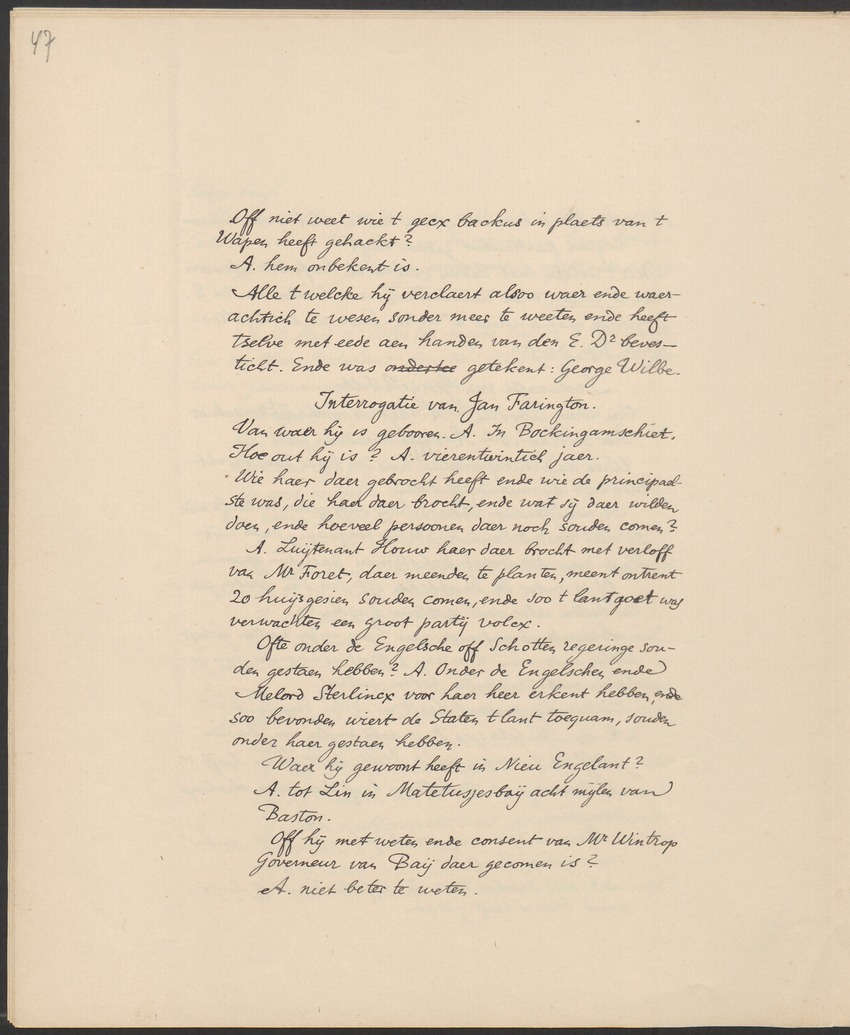 47
Off niet weet wie t gecx backus in plaets van t
Wapen heeft gehackt?
A. hem onbekent is.
Alle t welcke hij verclaert alsoo waer ende waer-
achtich te wesen sonder meer te weeten ende heeft
tselve met eede aen handen van den E. Dr beves-
ticht. Ende was onderte getekent: George Wilbe.
Interrogatie van Jan Farington.
Van waer hij is gebooren. A. In Bockingamschiet.
Hoe out hij is? A. vierentwintich jaer.
Wie haer daer gebrocht heeft ende wie de principael-
ste was, die haer daer brocht, ende wat sij daer wilden
doen, ende hoeveel persoonen daer noch souden comen?
A. Luijtenant Houw haer daer brocht met verloff
van Mr Foret, daer meenden te planten, meent ontrent
20 huijsgesien souden comen, ende soo t lant goet was
verwachten een groot partij volcx.
Ofte onder de Engelsche off Schotten regeringe sou-
den gestaen hebben? A. Onder de Engelschen ende
Melord Sterlincx voor haer heer erkent hebben, ende
soo bevonden wiert de Staten t lant toequam, souden
onder haer gestaen hebben.
Waer hij gewoont heeft in Nieu Engelant?
A. tot Lin in Matetusjesbaij acht mijlen van
Baston.
Off hij met weten ende consent van Mr Wintrop
Governeur van Baij daer gecomen is?
A. niet beter te weten.